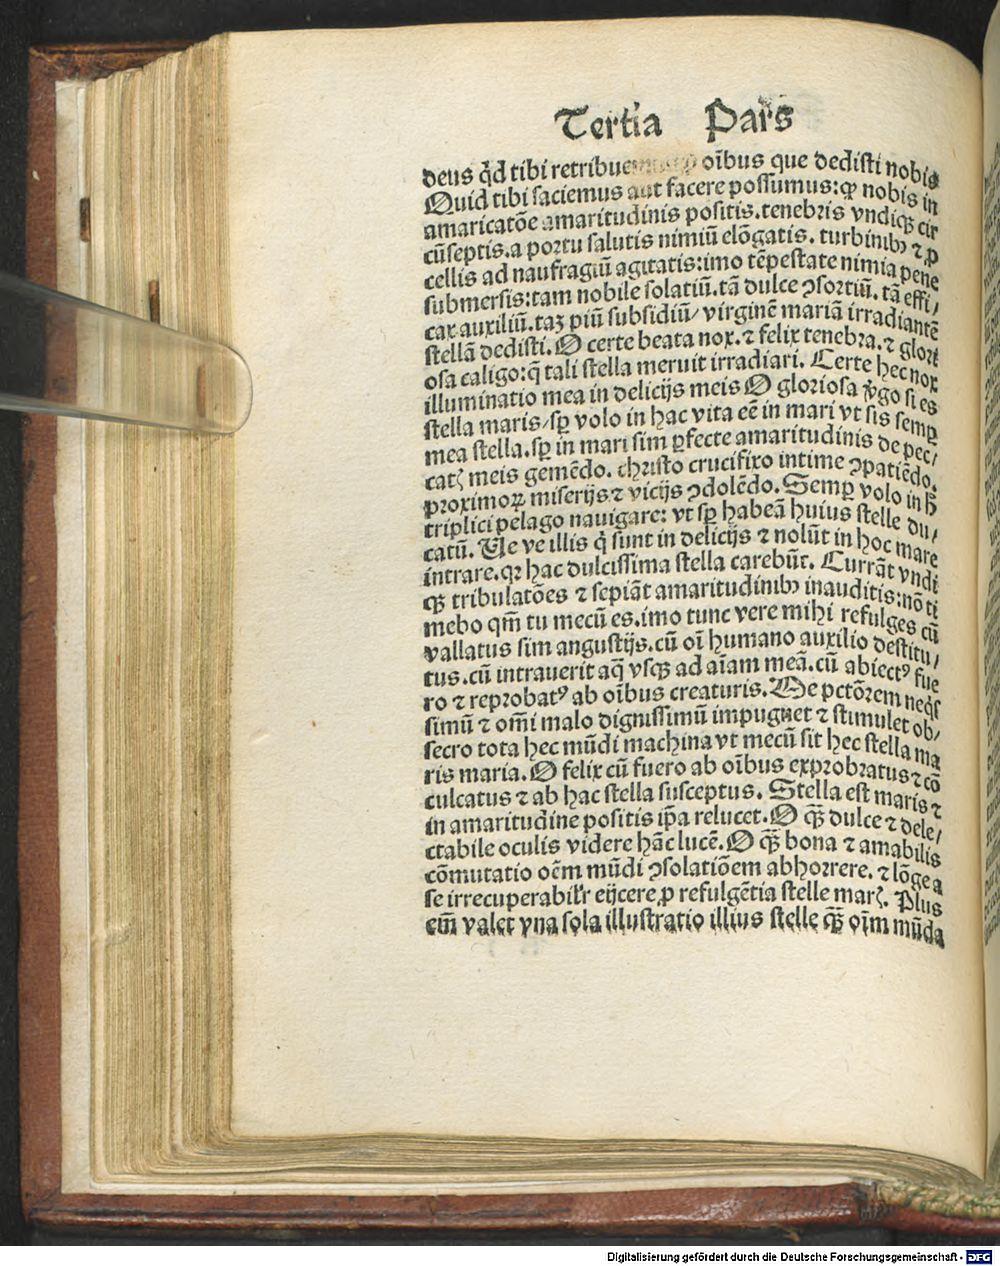 Tertia Pars
deus qd tibi retribue oībus que dedisti nobis
Quid tibi faciemus aut facere possumus: qꝫ nobis in
amaricatōe amaritudinis positis. tenebris vndiqꝫ cir
cūseptis. a portu salutis nimiū elōgatis. turbinibꝰ ⁊ ꝓ
cellis ad naufragiū agitatis: imo tēpestate nimia pene
submersis: tam nobile solatiū. tā dulce ꝯsortiū. tā effi/
cax auxiliū. taꝫ piū subsidiū/ virginē mariā irradiantē
stellā dedisti. O certe beata nox. ⁊ felix tenebra. ⁊ glori
osa caligo: q̄ tali stella meruit irradiari. Certe hec nox
illuminatio mea in delicijs meis O gloriosa v̄go si es
stella maris/ sꝑ volo in hac vita eē in mari vt sis semꝑ
mea stella. sꝑ in mari sim ꝑfecte amaritudinis de pec/
catꝭ meis gemēdo. christo crucifixo intime ꝯpatiēdo.
proximoꝝ miserijs ⁊ vicijs ꝯdolēdo. Semꝑ volo in h̄
triplici pelago nauigare: vt sꝑ habeā huius stelle du/
catū. Ve ve illis q̄ sunt in delicijs ⁊ nolūt in hoc mare
intrare. qꝛ hac dulcissima stella carebūt. Currāt vndi
qꝫ tribulatōes ⁊ sepiāt amaritudinibꝰ inauditis: nō ti
mebo qm̄ tu mecū es. imo tunc vere mihi refulges cū
vallatus sim angustijs. cū oī humano auxilio destitu/
tus. cū intrauerit aq̄ vsqꝫ ad aīam meā. cū abiectꝰ fue
ro ⁊ reprobatꝰ ab oībus creaturis. Me pctōrem neqs
simū ⁊ omī malo dignissimū impugnet ⁊ stimulet ob/
secro tota hec mūdi machina vt mecū sit hec stella ma
ris maria. O felix cū fuero ab oībus exprobratus ⁊ cō
culcatus ⁊ ab hac stella susceptus. Stella est maris ⁊
in amaritudine positis ip̄a relucet. O qꝫ̄ dulce ⁊ dele/
ctabile oculis videre hāc lucē. O qꝫ̄ bona ⁊ amabilis
cōmutatio oēm mūdi ꝯsolatiōem abhorrere. ⁊ lōge a
se irrecuperabilr̄ eijcere ꝓ refulgētia stelle marꝭ. Plus
em̄ valet vna sola illustratio illius stelle qꝫ̄ oīm mūda
Digitalisierung gefördert durch die Deutsche Forschungsgemeinschaft - DFG